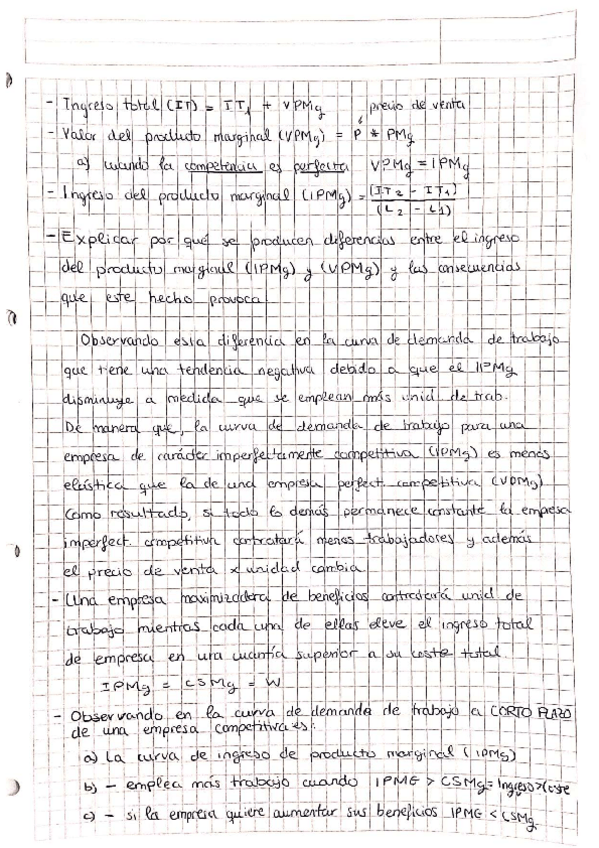 - Ingreso total (IT) = IT1 + VPMg precio de venta
- Valor del producto marginal (VPMg) = P * PMg
a) cuando la competencia es perfecta VPMg = IPMg
- Ingreso del producto marginal (IPMg) = (IT2 - IT1)
(L2 - L1)
- Explicar por qué se producen diferencias entre el ingreso
del producto marginal (IPMg) y (VPMg) y las consecuencias
que este hecho provoca
Observando esta diferencia en la curva de demanda de trabajo
que tiene una tendencia negativa debido a que el IPMg
disminuye a medida que se emplean más unid. de trab.
De manera que, la curva de demanda de trabajo para una
empresa de carácter imperfectamente competitiva (IPMg) es menos
elástica que la de una empresa perfect. competitiva (VPMg)
Como resultado, si todo lo demás permanece constante la empresa
imperfect. competitiva contratará menos trabajadores y además
el precio de venta x unidad cambia.
- Una empresa maximizadora de beneficios contratará unid de
trabajo mientras cada una de ellas eleve el ingreso total
de empresa en una cuantía superior a su coste total.
IPMg = CSMg = W
- Observando en la curva de demanda de trabajo a CORTO PLAZO
de una empresa competitiva es:
a) La curva de ingreso de producto marginal (IPMg)
b) - emplea más trabajo cuando IPMG > CSMg = Ingreso > Coste
c) - si la empresa quiere aumentar sus beneficios IPMG < CSMg